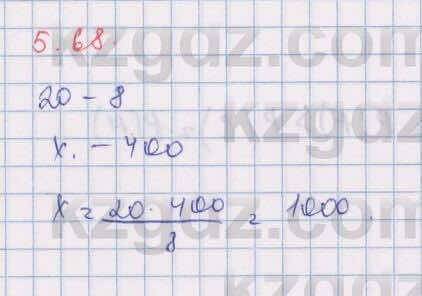 kzgdz.com
5.68.
20 - 8
kzgdz.com
x. - 400
x = 20 · 400 / 8 = 1000.
kzgdz.com